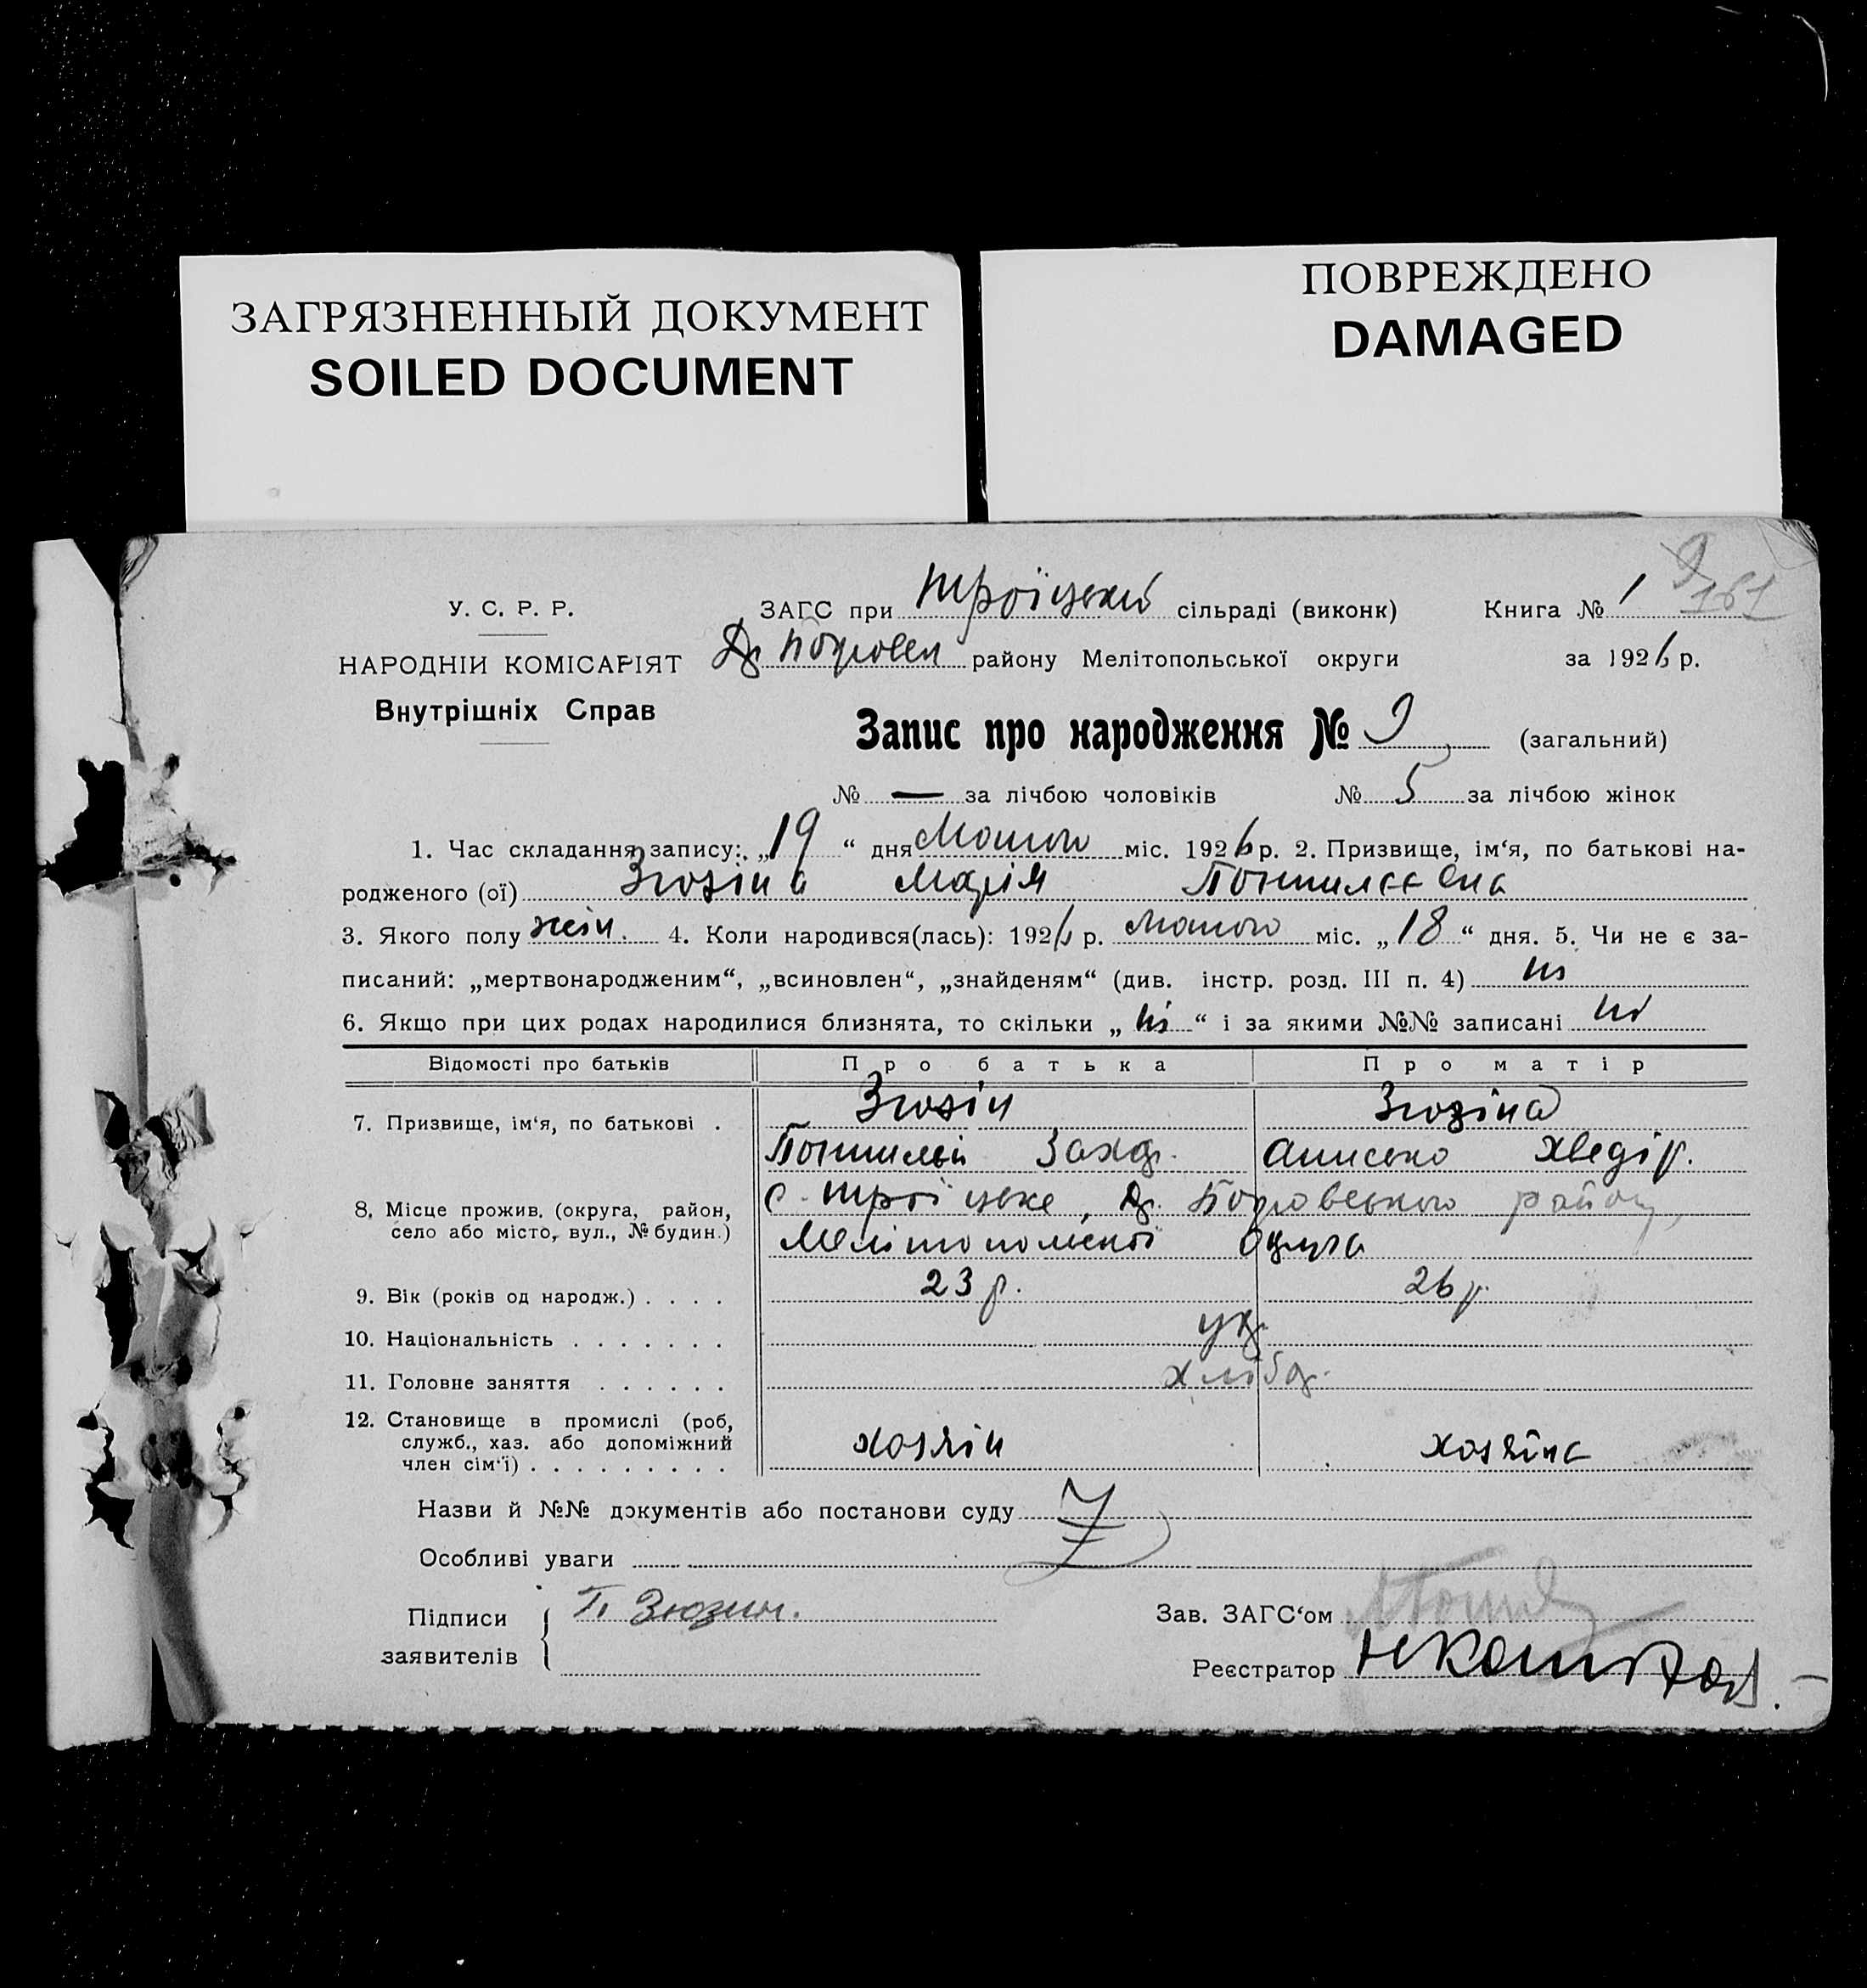 ЗАГРЯЗНЕННЫЙ ДОКУМЕНТ
SOILED DOCUMENT
ПОВРЕЖДЕНО
DAMAGED
У. С. Р. Р.
НАРОДНІЙ КОМІСАРІЯТ
Внутрішніх Справ
ЗАГС при Троіцькій сільраді (виконк)
Книга № 1
9
161
району Мелітопольської округи за 1926 р.
Запис про народження № 9 (загальний)
№ — за лічбою чоловіків № 5 за лічбою жінок
1. Час складання запису: „19“ дня Лютого міс. 1926 р. 2. Призвище, ім‘я, по батькові на-
родженого (ої) Зюзіна Марія
3. Якого полу жін. 4. Коли народився(лась): 1926 р. Лютого міс. „18“ дня. 5. Чи не є за-
писаний: „мертвонародженим“, „всиновлен“, „знайденям“ (див. інстр. розд. III п. 4) ні
6. Якщо при цих родах народилися близнята, то скільки „ні“ і за якими №№ записані ні
Відомості про батьків Про батька Про матір
7. Призвище, ім‘я, по батькові . Зюзін Зюзіна
Захар. Хведір.
8. Місце прожив. (округа, район, село або місто, вул., № будин.) с. Троіцьке, району,
Мелітопольскоі Округа
9. Вік (років од народж.) . . . . 23 р. 26 р.
10. Національність . . . . . . . укр.
11. Головне заняття . . . . . . хлібор.
12. Становище в промислі (роб, служб., хаз. або допоміжний член сім‘ї) . . . . . . . . . хозяін хозяїна
Назви й №№ документів або постанови суду
Особливі уваги
Підписи заявителів П. Зюзин.
Зав. ЗАГС‘ом
Реєстратор